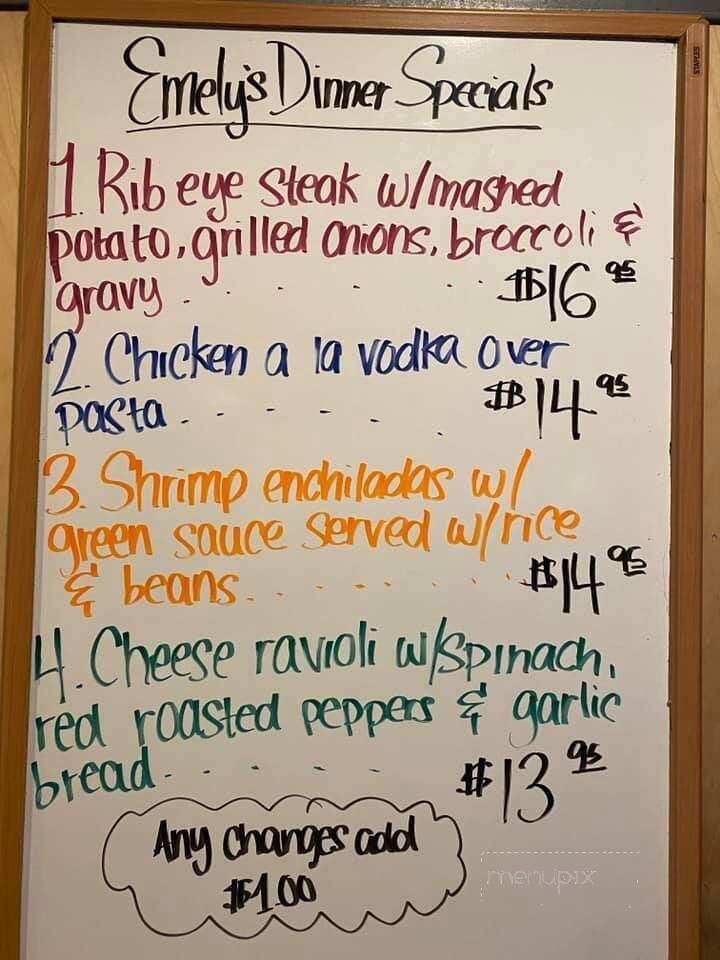 Emely's Dinner Specials
1. Rib eye steak w/mashed
potato, grilled onions, broccoli &
gravy . . . . . $16.95
2. Chicken a la vodka over
pasta . . . . . . $14.95
3. Shrimp enchiladas w/
green sauce served w/rice
& beans . . . . . . . . $14.95
4. Cheese ravioli w/spinach,
red roasted peppers & garlic
bread . . . . . . $13.95
Any changes add
$1.00
menupix
STAPLES